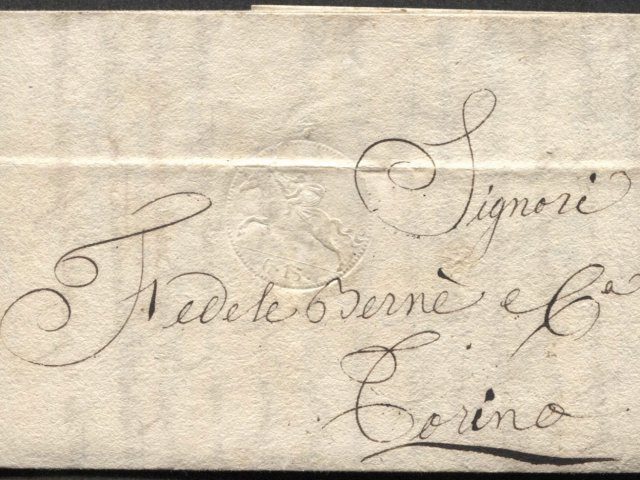 Signori
Fedele Bernè e C.a
Torino
C. 15